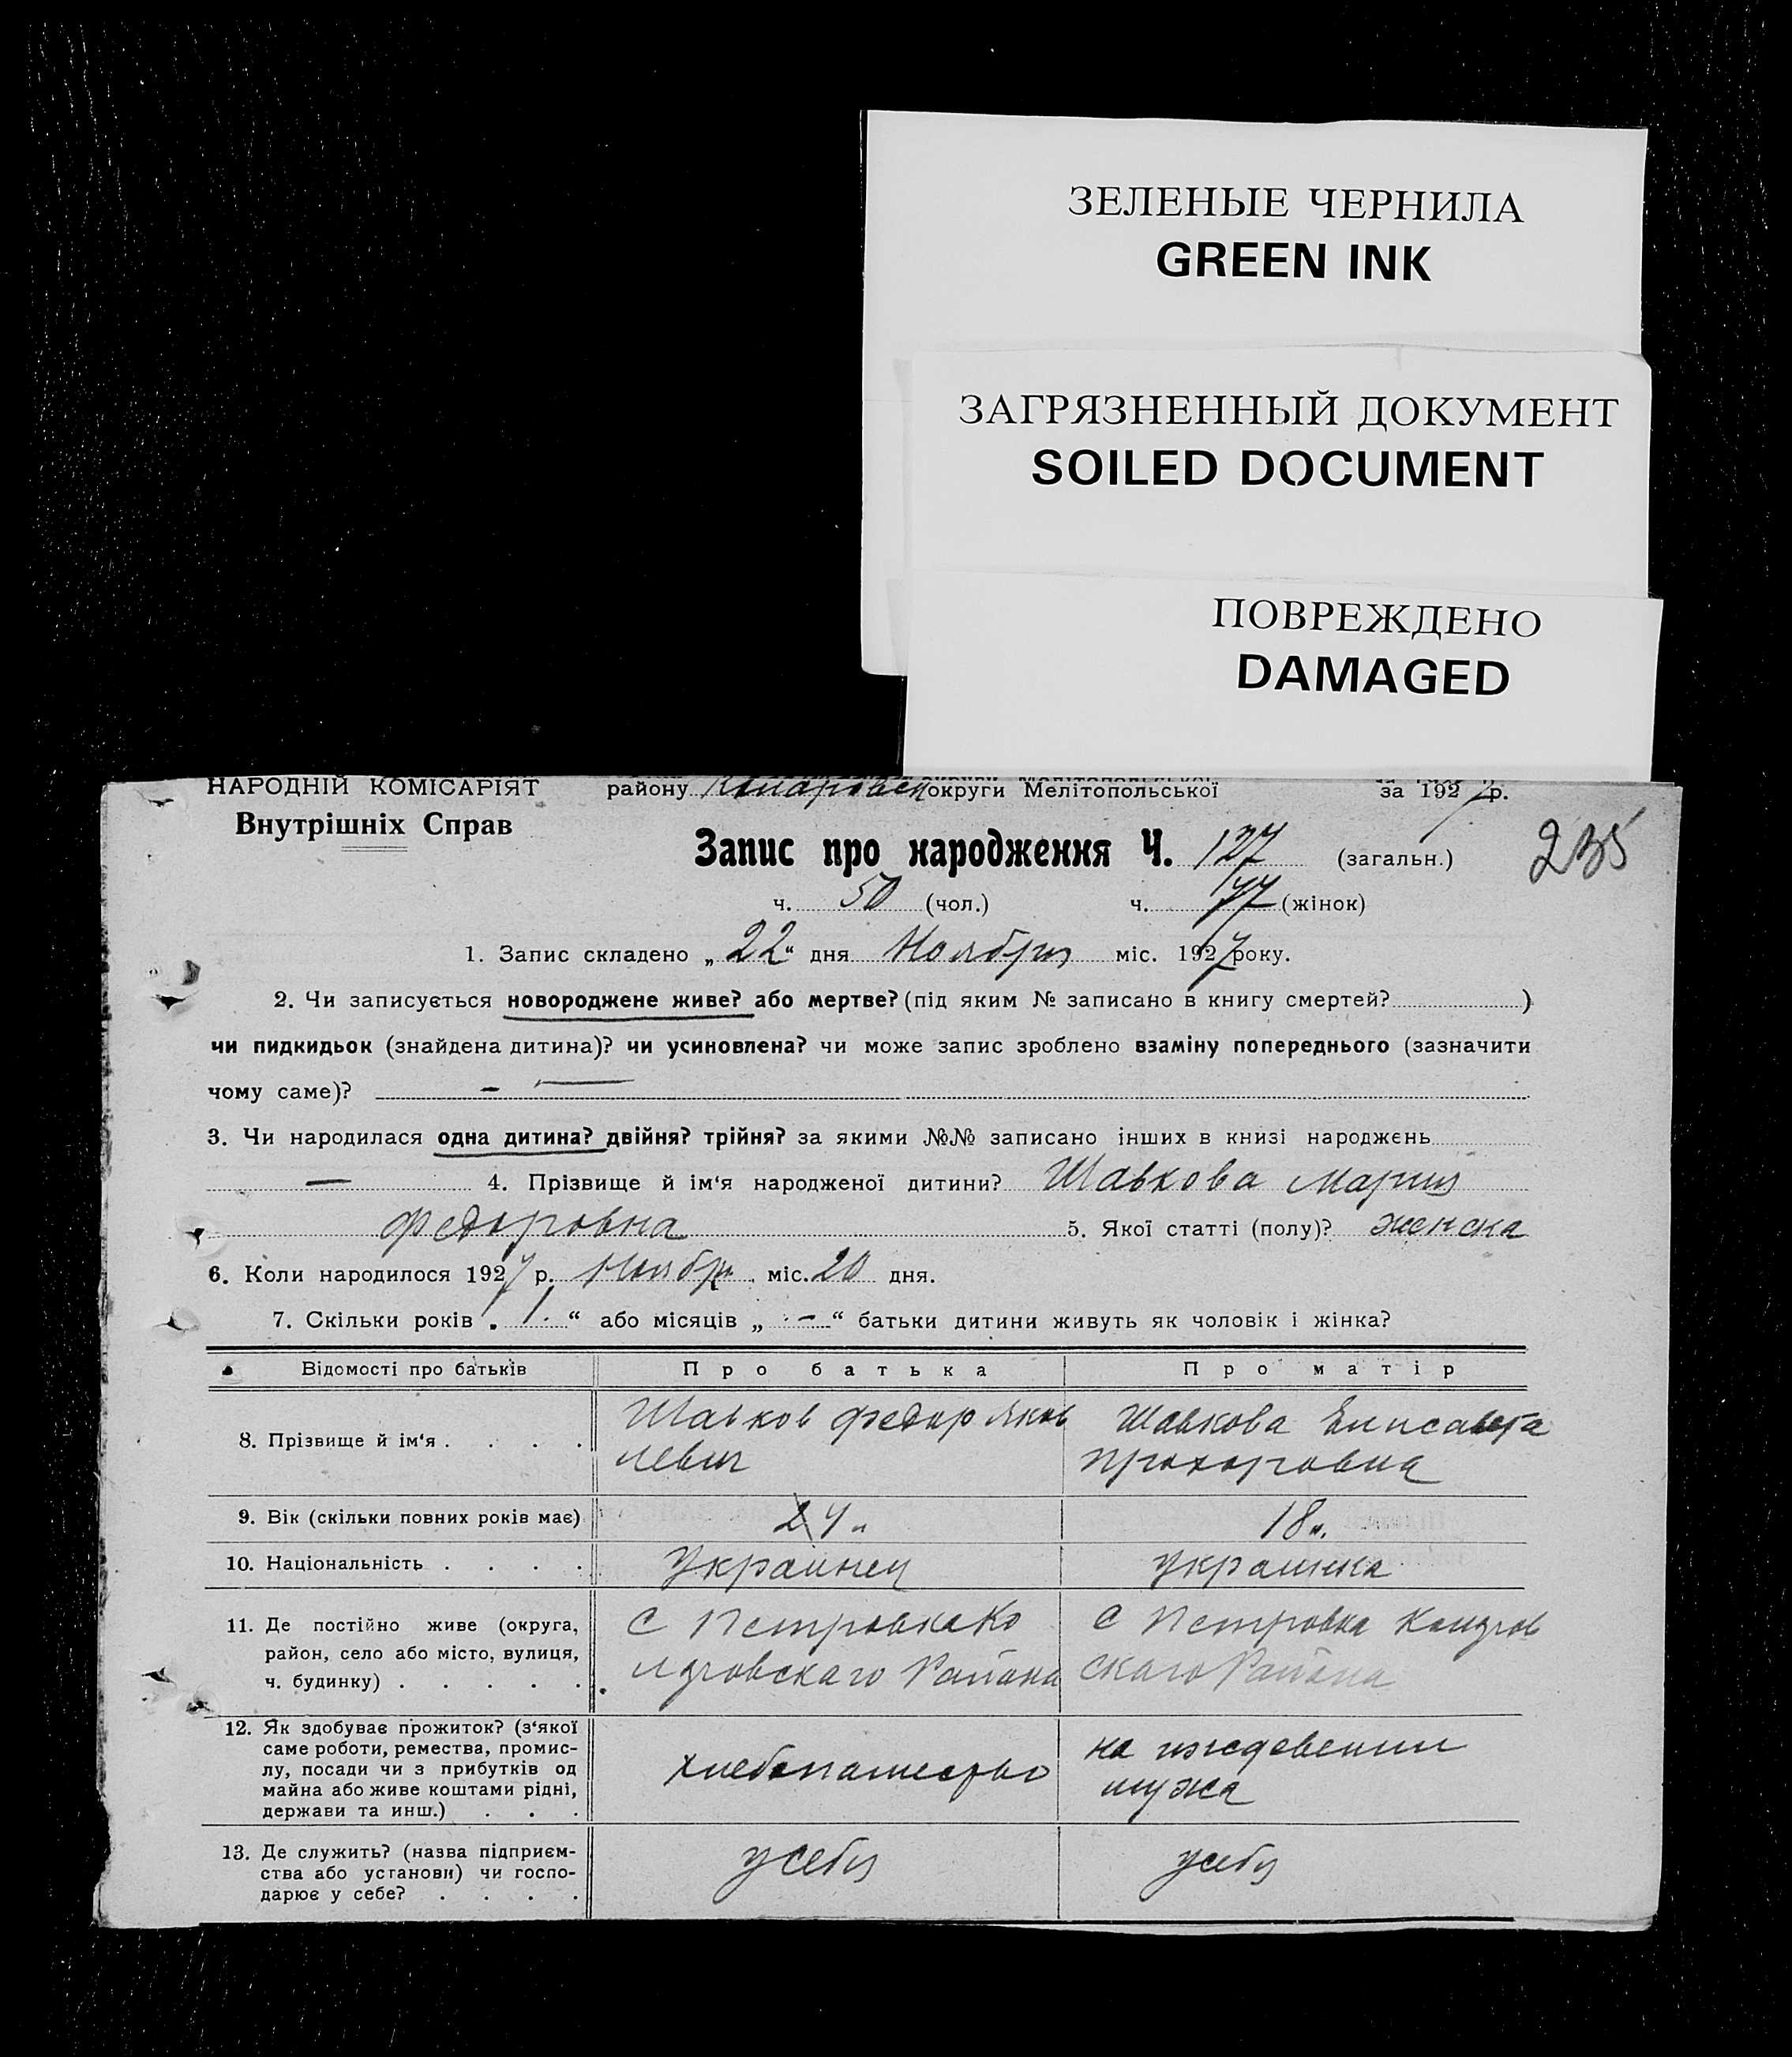 ЗЕЛЕНЫЕ ЧЕРНИЛА
GREEN INK
ЗАГРЯЗНЕННЫЙ ДОКУМЕНТ
SOILED DOCUMENT
ПОВРЕЖДЕНО
DAMAGED
НАРОДНІЙ КОМІСАРІЯТ району округи Мелітопольської за 1927 р.
Внутрішніх Справ
Запис про народження Ч. 127 (загальн.) 235
ч. 50 (чол.) ч. 77 (жінок)
1. Запис складено „22“ дня Ноября міс. 1927 року.
2. Чи записується новороджене живе? або мертве? (під яким № записано в книгу смертей? )
чи пидкидьок (знайдена дитина)? чи усиновлена? чи може запис зроблено взаміну попереднього (зазначити
чому саме)? - —
3. Чи народилася одна дитина? двійня? трійня? за якими №№ записано інших в книзі народжень
— 4. Прізвище й ім‘я народженої дитини? Шавкова Мария
Федоровна 5. Якої статті (полу)? женска
6. Коли народилося 1927 р. Ноября міс. 20 дня.
7. Скільки років „ 1 “ або місяців „ - “ батьки дитини живуть як чоловік і жінка?
Відомості про батьків Про батька Про матір
8. Прізвище й ім‘я . . . . Шавков Федор Яков Шавкова Елисавета
левич Прохоровна
9. Вік (скільки повних років має) 24 18
10. Національність . . . . Украинец украинка
11. Де постійно живе (округа, с Петровка с Петровка
район, село або місто, вулиця,
ч. будинку) . . . . . Района скаго Района
12. Як здобуває прожиток? (з‘якої
саме роботи, ремества, промис- на иждевении
лу, посади чи з прибутків од хлебопашество мужа
майна або живе коштами рідні,
держави та инш.) . . .
13. Де служить? (назва підприєм- у себя у себя
ства або установи) чи госпо-
дарює у себе? . . . .